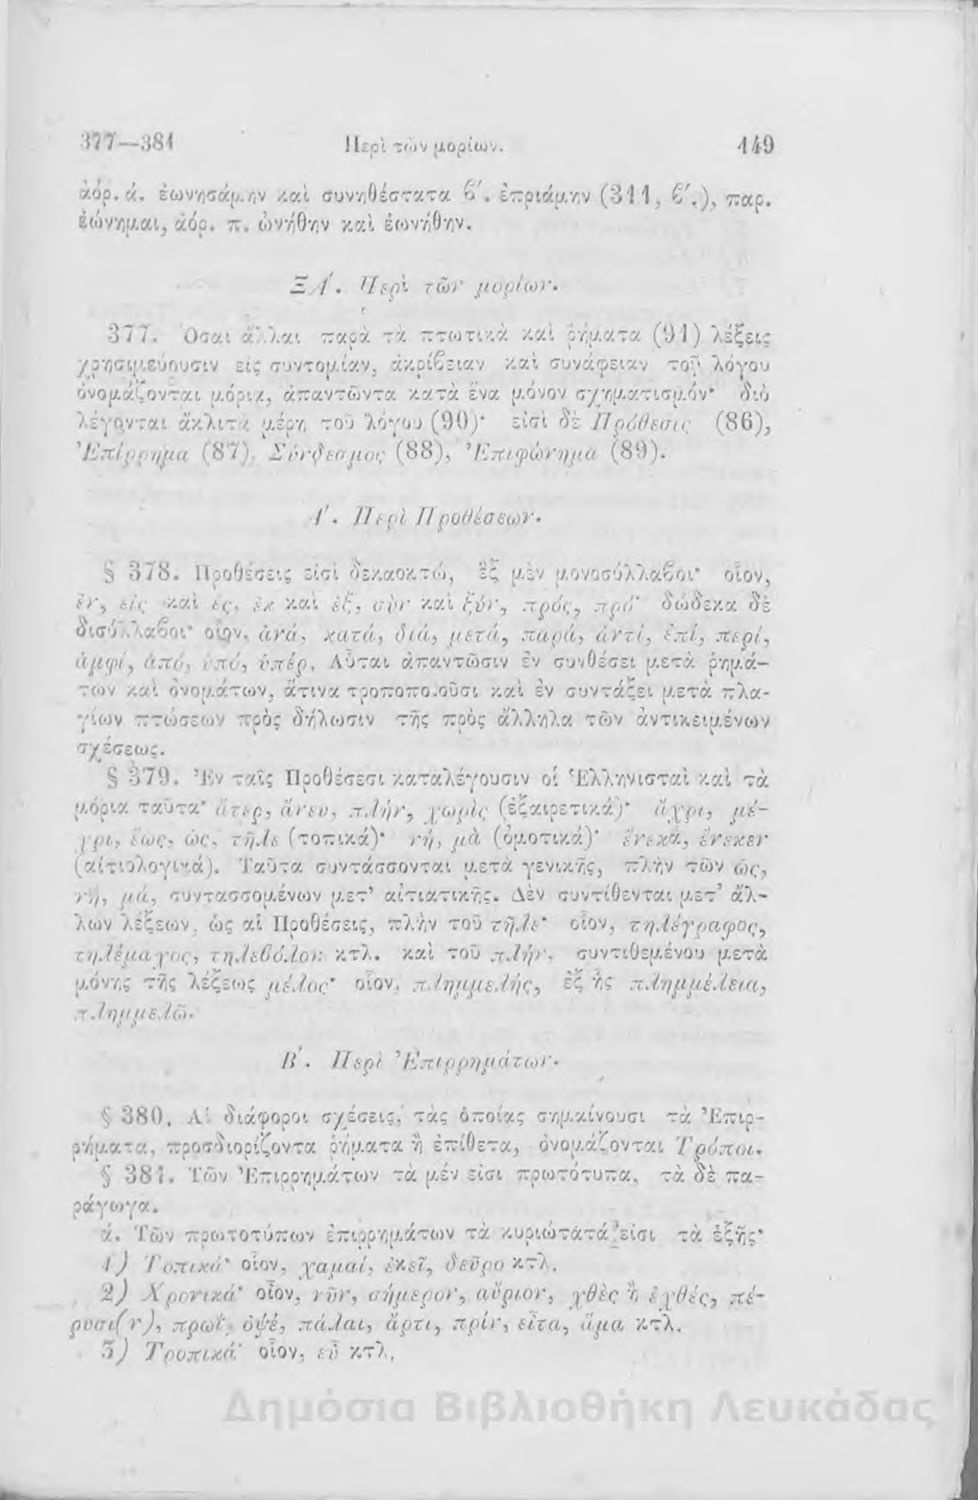 377—381 Περὶ τῶν μορίων. 149
ἀόρ. ά. ἐωνησάμην καὶ συνηθέστατα ϐ΄. ἐπριάμην (311, ϐ΄.), παρ.
ἐώνημαι, ἀόρ. π. ὠνήθην καὶ ἐωνήθην.
ΞΑ΄. Περὶ τῶν μορίων.
377. Ὅσαι ἄλλαι παρὰ τὰ πτωτικὰ καὶ ῥήματα (91) λέξεις
χρησιμεύουσιν εἰς συντομίαν, ἀκρίϐειαν καὶ συνάφειαν τοῦ λόγου
ὀνομάζονται μόρια, ἀπαντῶντα κατὰ ἕνα μόνον σχηματισμόν· διὸ
λέγονται ἄκλιτα μέρη τοῦ λόγου (90)· εἰσὶ δὲ Πρόθεσις (86),
Ἐπίρρημα (87), Σύνδεσμος (88), Ἐπιφώνημα (89).
Α΄. Περὶ Προθέσεων.
§ 378. Προθέσεις εἰσὶ δεκαοκτώ, ἓξ μὲν μονοσύλλαϐοι· οἷον,
ἐν, εἰς καὶ ἐς, ἐκ καὶ ἐξ, σὺν καὶ ξύν, πρός, πρό· δώδεκα δὲ
δισύλλαϐοι· οἷον, ἀνά, κατά, διά, μετά, παρά, ἀντί, ἐπί, περί,
ἀμφί, ἀπό, ὑπό, ὑπέρ. Αὗται ἀπαντῶσιν ἐν συνθέσει μετὰ ῥημά-
των καὶ ὀνομάτων, ἅτινα τροποποιοῦσι καὶ ἐν συντάξει μετὰ πλα-
γίων πτώσεων πρὸς δήλωσιν τῆς πρὸς ἄλληλα τῶν ἀντικειμένων
σχέσεως.
§ 379. Ἐν ταῖς Προθέσεσι καταλέγουσιν οἱ Ἑλληνισταὶ καὶ τὰ
μόρια ταῦτα· ἄτερ, ἄνευ, πλήν, χωρὶς (ἐξαιρετικά)· ἄχρι, μέ-
χρι, ἕως, ὡς, τῆλε (τοπικά)· νή, μὰ (ὀμοτικά)· ἕνεκα, ἕνεκεν
(αἰτιολογικά). Ταῦτα συντάσσονται μετὰ γενικῆς, πλὴν τῶν ὡς,
νή, μά, συντασσομένων μετ’ αἰτιατικῆς. Δὲν συντίθενται μετ’ ἄλ-
λων λέξεων, ὡς αἱ Προθέσεις, πλὴν τοῦ τῆλε· οἷον, τηλέγραφος,
τηλέμαχος, τηλεϐόλον κτλ. καὶ τοῦ πλήν, συντιθεμένου μετὰ
μόνης τῆς λέξεως μέλος· οἷον, πλημμελής, ἐξ ἧς πλημμέλεια,
πλημμελῶ.
Β΄. Περὶ Ἐπιρρημάτων.
§ 380. Αἱ διάφοροι σχέσεις, τὰς ὁποίας σημαίνουσι τὰ Ἐπιρ-
ρήματα, προσδιορίζοντα ῥήματα ἢ ἐπίθετα, ὀνομάζονται Τρόποι.
§ 381. Τῶν Ἐπιρρημάτων τὰ μέν εἰσι πρωτότυπα, τὰ δὲ πα-
ράγωγα.
ά. Τῶν πρωτοτύπων ἐπιρρημάτων τὰ κυριώτατά εἰσι τὰ ἑξῆς·
1) Τοπικά· οἷον, χαμαί, ἐκεῖ, δεῦρο κτλ.
2) Χρονικά· οἷον, νῦν, σήμερον, αὔριον, χθὲς ἢ ἐχθές, πέ-
ρυσι(ν), πρωΐ, ὀψέ, πάλαι, ἄρτι, πρίν, εἶτα, ἅμα κτλ.
3) Τροπικά· οἷον, εὖ κτλ.
Δημόσια Βιβλιοθήκη Λευκάδας